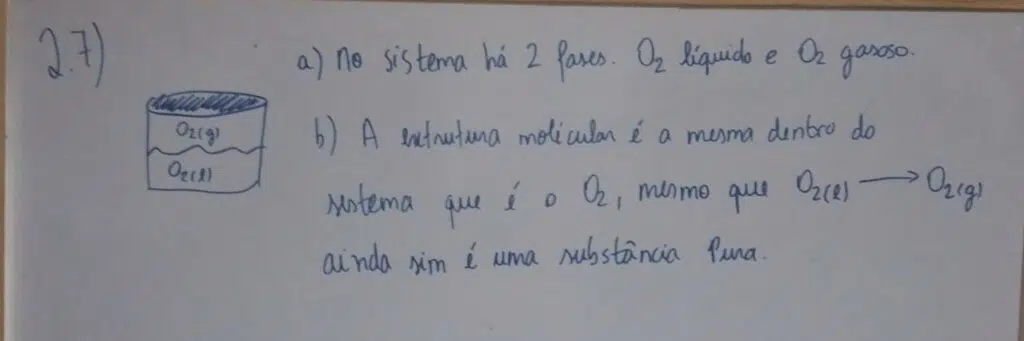 2.7)
a) No sistema há 2 fases. O2 líquido e O2 gasoso.
O2(g)
O2(l)
b) A estrutura molecular é a mesma dentro do
sistema que é o O2, mesmo que O2(l) → O2(g)
ainda sim é uma substância Pura.